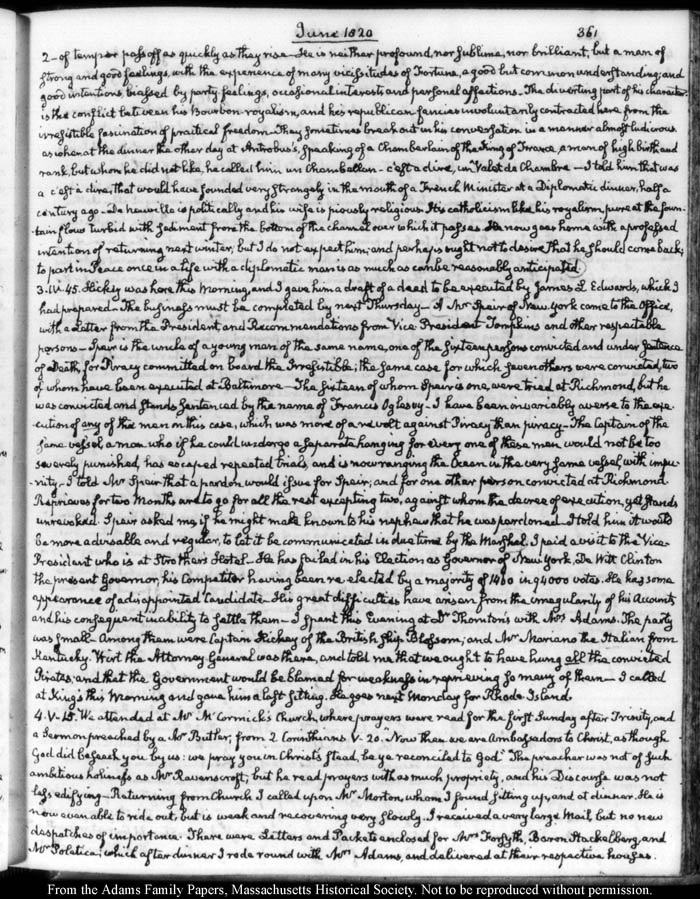 June 1820
361
2 - of temper pass off as quickly as they rise - He is neither profound, nor sublime, nor brilliant, but a man of
strong and good feelings, with the experience of many vicissitudes of Fortune, a good but common understanding; and
good intentions, biassed by party feelings, occasional interests and personal affections. The diverting part of his character
is the conflict between his Bourbon royalism, and his republican fancies involuntarily contracted here from the
irresistible fascination of practical freedom. They sometimes break out in his conversation in a manner almost ludicrous
as when at the dinner the other day at Antrobus's, speaking of a Chamberlain of the King of France, a man of high birth and
rank, but whom he did not like, he called him un Chambellan - c'est a dire, un Valet de Chambre - I told him that was
a c'est a dire, that would have sounded very strangely in the mouth of a French Minister at a Diplomatic dinner, half a
century ago - De Neuville is politically and his wife is piously religious. His catholicism like his royalism, pure at the foun-
tain flows turbid with sediment from the bottom of the channel over which it passes. He now goes home with a professed
intention of returning next winter; but I do not expect him; and perhaps ought not to desire that he should come back;
to part in Peace once in a life with a diplomatic man is as much as can be reasonably anticipated.
3. IV:45. Hickey was here this Morning, and I gave him a draft of a deed to be executed by James L Edwards, which I
had prepared - The business must be completed by next Thursday - A Mr Speir of New York came to the Office,
with a Letter from the President, and Recommendations from Vice President Tompkins and other respectable
persons - Speir is the uncle of a young man of the same name, one of the sixteen persons convicted and under Sentence
of Death, for Piracy committed on board the Irresistible; the same case for which seven others were convicted, two
of whom have been executed at Baltimore - The sixteen of whom Speir is one, were tried at Richmond, but he
was convicted and stands sentenced by the name of Francis Oglesby - I have been invariably averse to the exe-
cution of any of the men in this case, which was more of a revolt against Piracy than piracy - The Captain of the
same vessel, a man who if he could undergo a separate hanging for every one of these men would not be too
severely punished, has escaped repeated trials, and is now ranging the Ocean in the very same vessel, with impu-
-nity - I told Mr Speir that a pardon would issue for Speir; and for one other person convicted at Richmond
Reprieves for two Months are to go for all the rest excepting two, against whom the decree of execution, yet stands
unrevoked. Speir asked me, if he might make known to his nephew that he was pardoned. I told him it would
be more advisable and regular, to let it be communicated in due time by the Marshal. I paid a visit to the Vice-
President who is at Strothers Hotel - He has failed in his Election as Governor of New York, De Witt Clinton
the present Governor, his Competitor having been re-elected by a majority of 1460 in 94000 votes. He has some
appearance of a disappointed Candidate - His great difficulties have arisen from the irregularity of his Accounts
and his consequent inability to settle them - I spent this Evening at Dr Thornton's with Mrs Adams. The party
was small - Among them were Captain Hickey of the British Ship Blossom; and Mr Mariano the Italian from
Kentucky. Wirt the Attorney General was there, and told me that we ought to have hung all the convicted
Pirates, and that the Government would be blamed for weakness in reprieving so many of them - I called
at King's this Morning and gave him a last sitting. He goes next Monday for Rhode Island.
4. V:15. We attended at Mr McCormick's Church, where prayers were read for the first Sunday after Trinity, and
a Sermon preached by a Mr Butler, from 2. Corinthians V. 20. "Now then we are Ambassadors to Christ, as though
God did beseech you by us: we pray you in Christ's stead, be ye reconciled to God" The preacher was not of such
ambitious holiness as Mr Ravenscroft; but he read prayers with as much propriety, and his Discourse was not
less edifying - Returning from Church I called upon Mr Morton, whom I found sitting up, and at dinner. He is
now even able to ride out, but is weak and recovering very slowly. I received a very large Mail, but no new
despatches of importance. There were Letters and Packets enclosed for Mrs Forsyth, Baron Stackelberg, and
Mr Poletica; which after dinner I rode round with Mrs Adams, and delivered at their respective houses.
From the Adams Family Papers, Massachusetts Historical Society. Not to be reproduced without permission.